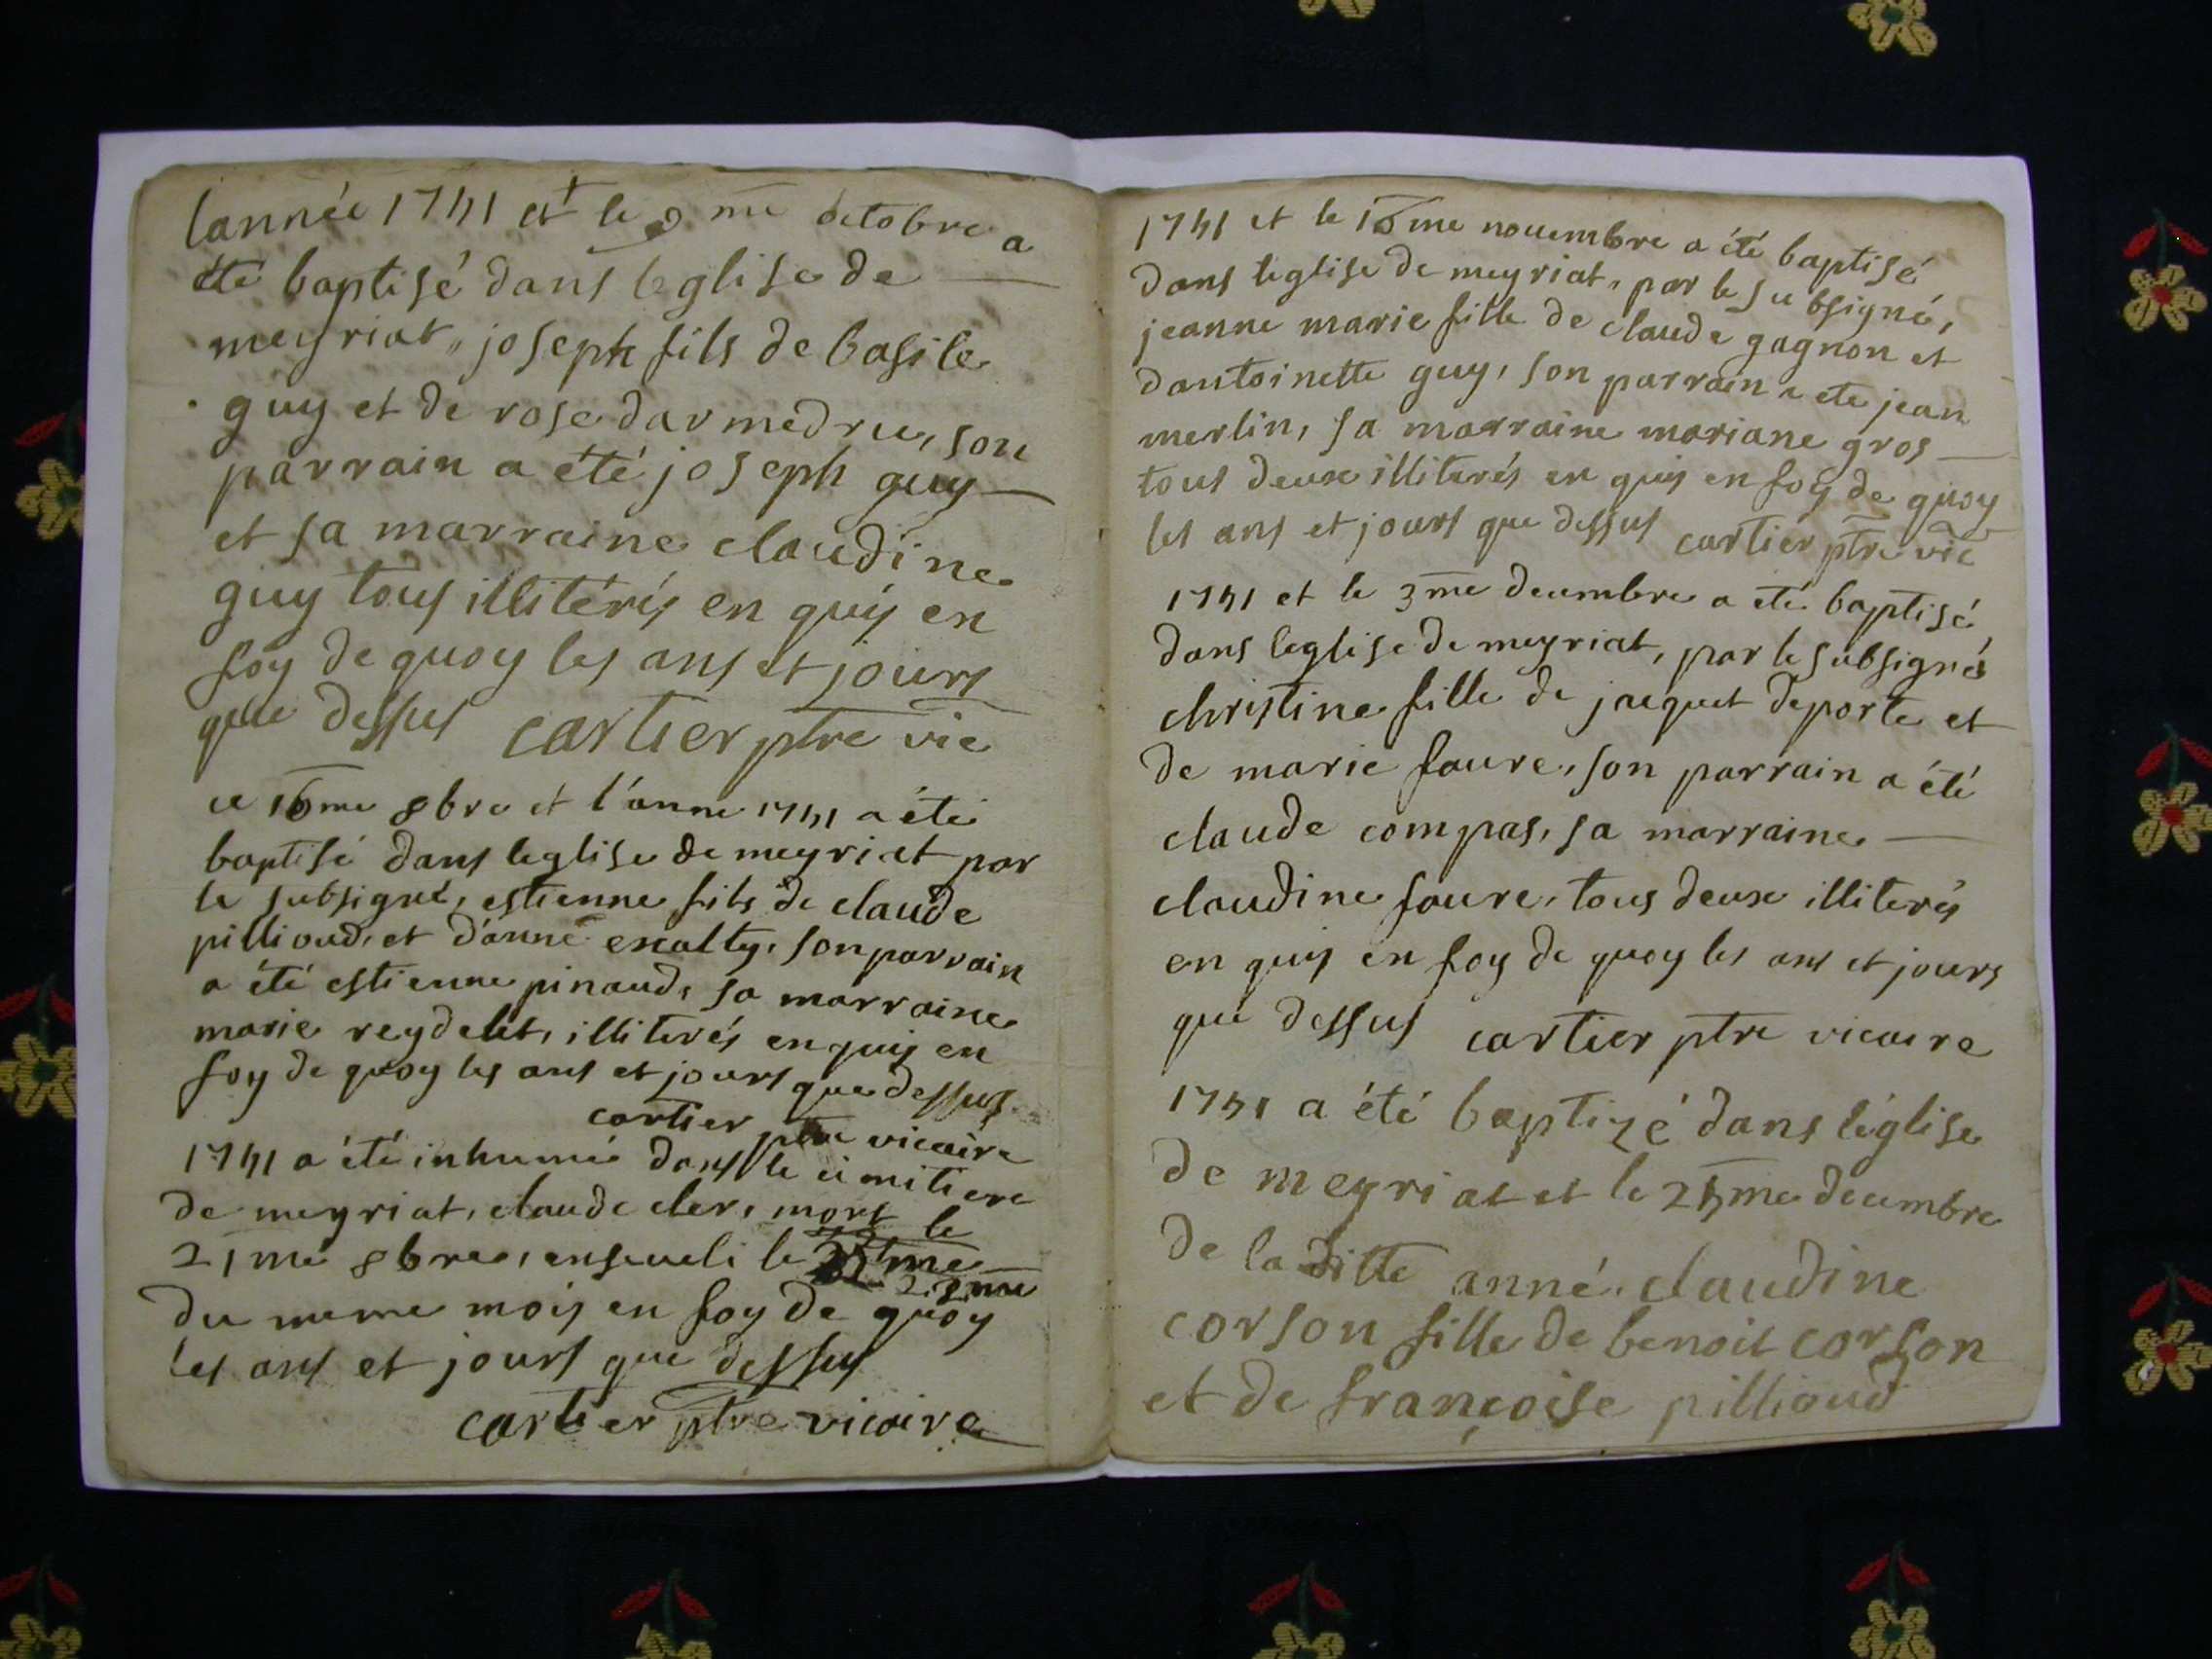 lannéé 1741 et le 9 me octobre a
été baptisé dans leglise de
meyriat, joseph fils de basile
guy et de rose darmedru, son
parrain a été joseph guy
et sa marraine claudine
guy tous illitérés en quis en
foy de quoy les ans et jours
que dessus cartier ptre vic
ce 16me 8bre et l'anne 1741 a été
baptisé dans leglise de meyriat par
le subsigné, estienne fils de claude
pillioud, et d'anne escalty, son parrain
a été estienne pinaud, sa marraine
marie reydelet, illiterés en quis en
foy de quoy les ans et jours que dessus
cartier ptre vicaire
1741 a été inhumé dans le cimitiere
de meyriat, claude cler, mort le
21 me 8bre, enseveli le
23me
du meme mois en foy de quoy
les ans et jours que dessus
cartier ptre vicaire
1741 et le 16me nouembre a été baptisé
dans leglise de meyriat, par le subsigné,
jeanne marie fille de claude gagnon et
dantoinette guy, son parrain a ete jean
merlin, sa marraine mariane gros
tous deux illiterés en quis en foy de quoy
les ans et jours que dessus cartier ptre vic
1741 et le 3me decembre a eté baptisé
dans leglise de meyriat, par le subsigné
christine fille de jacquet deporte et
de marie faure, son parrain a été
claude compas, sa marraine
claudine faure, tous deux illiterés
en quis en foy de quoy les ans et jours
que dessus cartier ptre vicaire
1741 a été baptizé dans léglise
de meyriat et le 25me decembre
de la ditte anné, claudine
corson fille de benoit corson
et de françoise pillioud